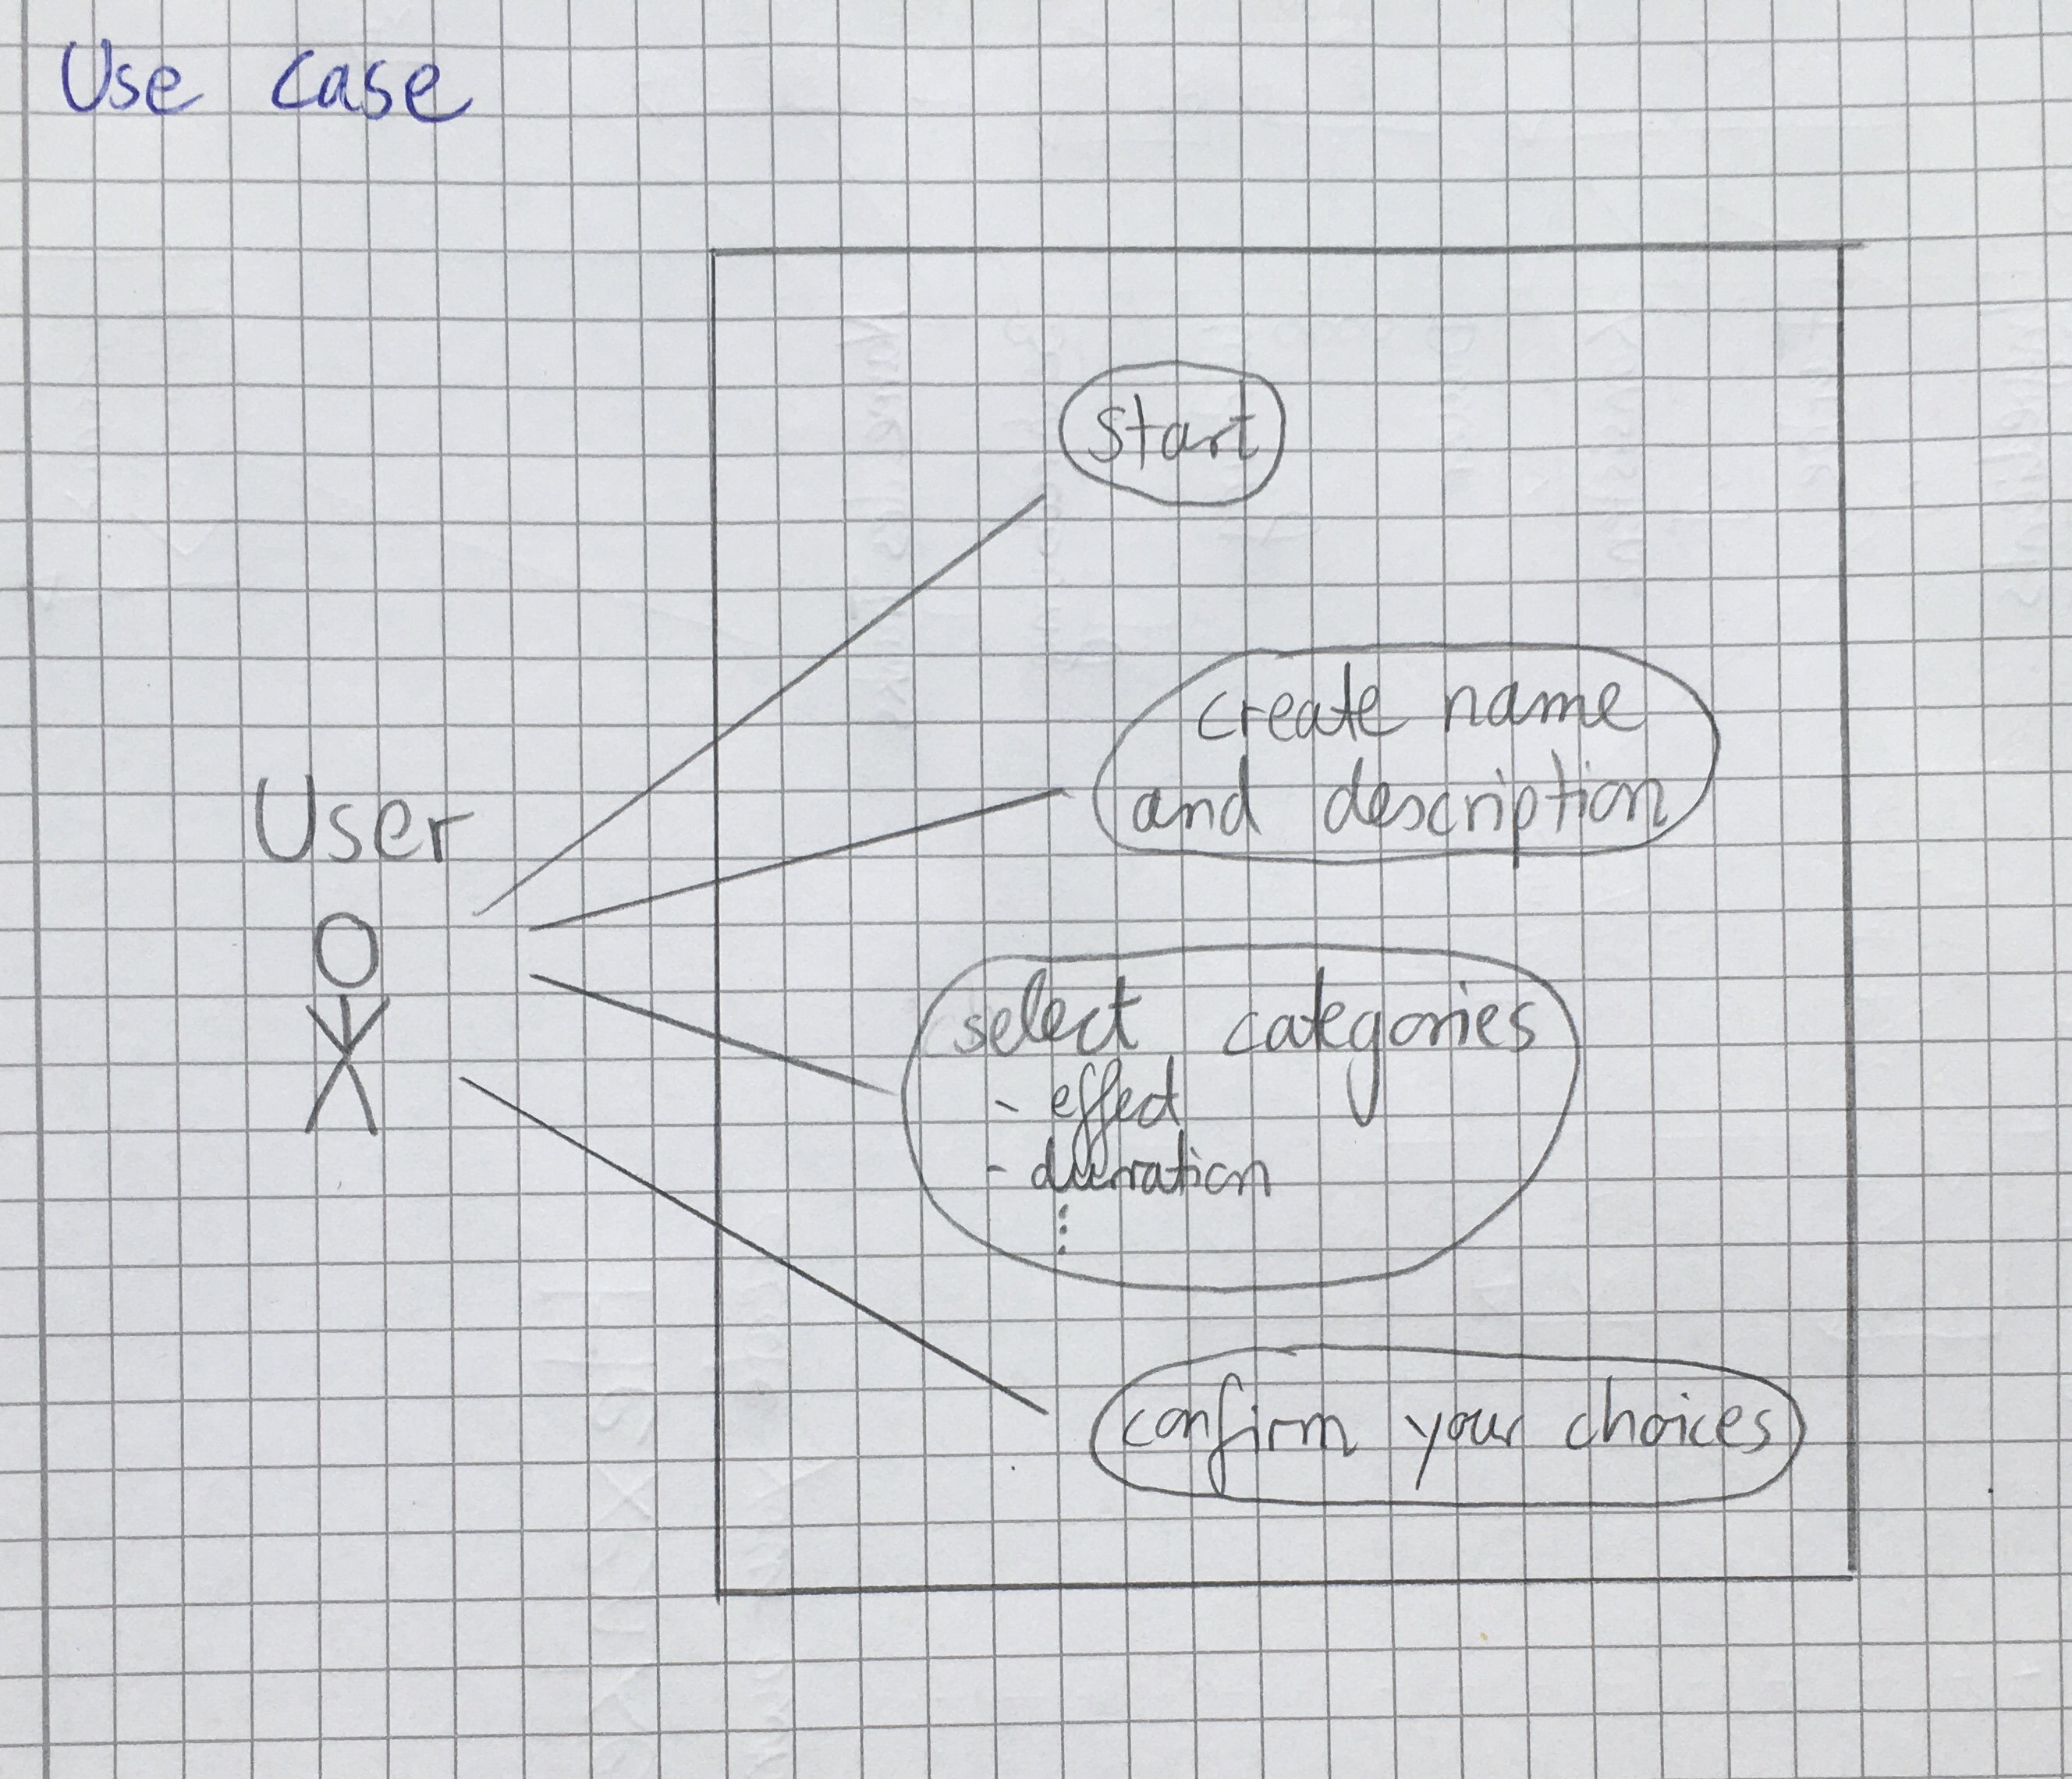 Use case
start
create name
and description
User
select categories
- effect
- duration
⋮
confirm your choices